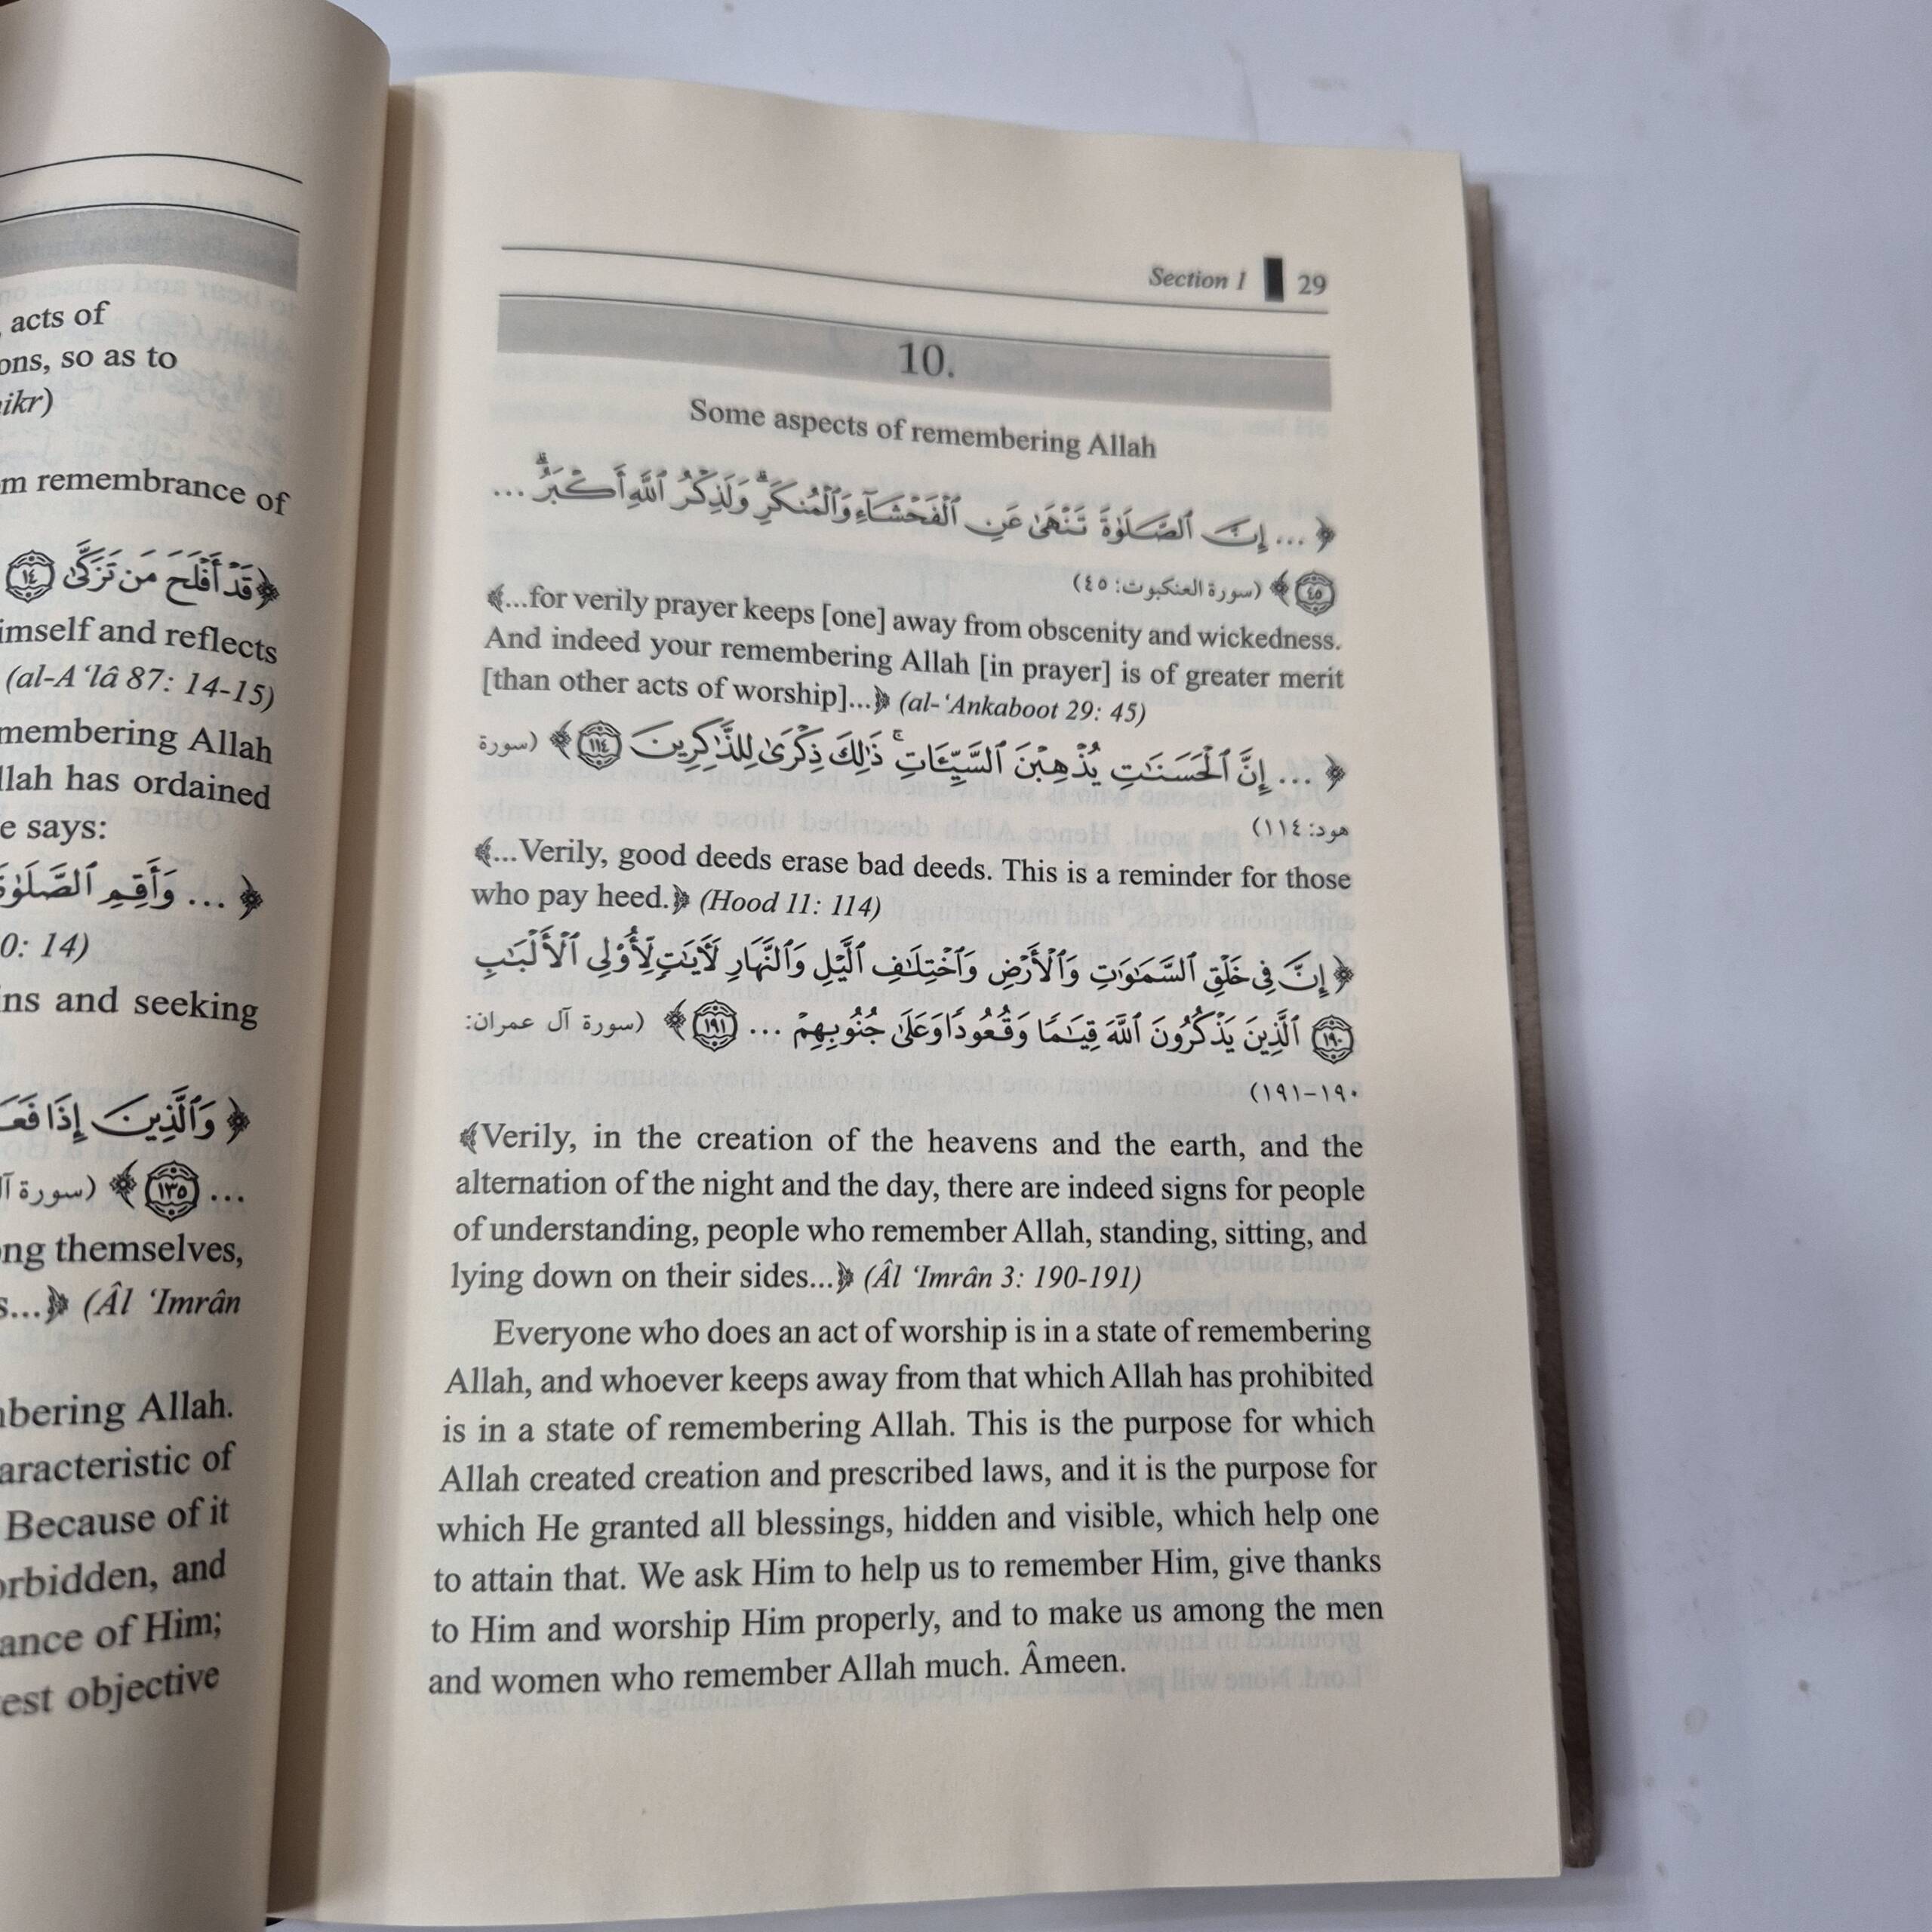 acts of
ons, so as to
ikr)
m remembrance of
﴿قَدْ أَفْلَحَ مَن تَزَكَّىٰ ١٤
imself and reflects
(al-A‘lâ 87: 14-15)
membering Allah
llah has ordained
e says:
﴿ ... وَأَقِمِ ٱلصَّلَوٰةَ
0: 14)
ins and seeking
﴿ وَٱلَّذِينَ إِذَا
... ١٣٥ ﴾ (سورة
ng themselves,
s...﴾ (Âl ‘Imrân
bering Allah.
aracteristic of
Because of it
orbidden, and
ance of Him;
est objective
Section 1 29
10.
Some aspects of remembering Allah
﴿ ... إِنَّ ٱلصَّلَوٰةَ تَنْهَىٰ عَنِ ٱلْفَحْشَآءِ وَٱلْمُنكَرِ ۗ وَلَذِكْرُ ٱللَّهِ أَكْبَرُ ۗ ...
٤٥ ﴾ (سورة العنكبوت: ٤٥)
﴿...for verily prayer keeps [one] away from obscenity and wickedness.
And indeed your remembering Allah [in prayer] is of greater merit
[than other acts of worship]...﴾ (al-‘Ankaboot 29: 45)
﴿ ... إِنَّ ٱلْحَسَنَـٰتِ يُذْهِبْنَ ٱلسَّيِّـَٔاتِ ۚ ذَٰلِكَ ذِكْرَىٰ لِلذَّٰكِرِينَ ١١٤ ﴾ (سورة
هود: ١١٤)
﴿...Verily, good deeds erase bad deeds. This is a reminder for those
who pay heed.﴾ (Hood 11: 114)
﴿ إِنَّ فِى خَلْقِ ٱلسَّمَـٰوَٰتِ وَٱلْأَرْضِ وَٱخْتِلَـٰفِ ٱلَّيْلِ وَٱلنَّهَارِ لَـَٔايَـٰتٍ لِّأُو۟لِى ٱلْأَلْبَـٰبِ
١٩٠ ٱلَّذِينَ يَذْكُرُونَ ٱللَّهَ قِيَـٰمًا وَقُعُودًا وَعَلَىٰ جُنُوبِهِمْ ... ١٩١ ﴾ (سورة آل عمران:
١٩٠-١٩١)
﴿Verily, in the creation of the heavens and the earth, and the
alternation of the night and the day, there are indeed signs for people
of understanding, people who remember Allah, standing, sitting, and
lying down on their sides...﴾ (Âl ‘Imrân 3: 190-191)
Everyone who does an act of worship is in a state of remembering
Allah, and whoever keeps away from that which Allah has prohibited
is in a state of remembering Allah. This is the purpose for which
Allah created creation and prescribed laws, and it is the purpose for
which He granted all blessings, hidden and visible, which help one
to attain that. We ask Him to help us to remember Him, give thanks
to Him and worship Him properly, and to make us among the men
and women who remember Allah much. Âmeen.